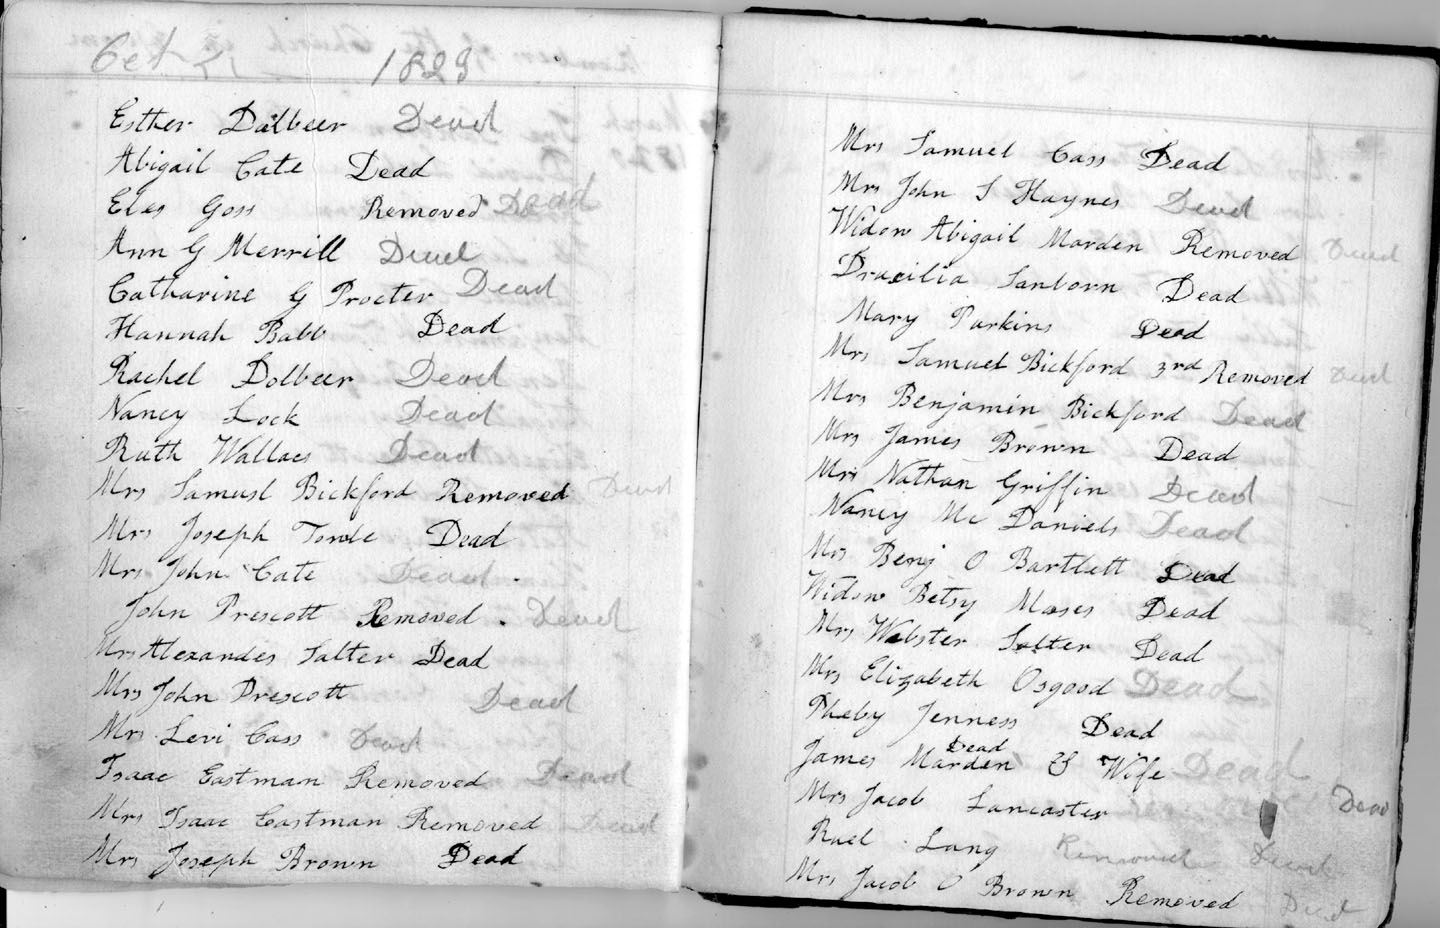 Oct 1823
Esther Dolbeer Dead
Abigail Cate Dead
Goss Removed Dead
Ann G Merrill Dead
Catharine G Procter Dead
Hannah Babb Dead
Rachel Dolbeer Dead
Nancy Lock Dead
Ruth Wallace Dead
Mrs Samuel Bickford Removed Dead
Mrs Joseph Towle Dead
Mrs John Cate Dead
John Prescott Removed Dead
Mrs Alexander Salter Dead
Mrs John Prescott Dead
Mrs Levi Cass Dead
Isaac Eastman Removed Dead
Mrs Isaac Eastman Removed Dead
Mrs Joseph Brown Dead
Mrs Samuel Cass Dead
Mrs John S Haynes Dead
Widow Abigail Marden Removed Dead
Drucilia Sanborn Dead
Mary Parkins Dead
Mrs Samuel Bickford 3rd Removed Dead
Mrs Benjamin Bickford Dead
Mrs James Brown Dead
Mrs Nathan Griffin Dead
Nancy Mc Daniels Dead
Mrs Benj O Bartlett Dead
Widow Betsy Moses Dead
Mrs Webster Salter Dead
Mrs Elizabeth Osgood Dead
Pheby Jenness Dead
Dead
James Marden & Wife Dead
Mrs Jacob Lancaster Dead
Lang Removed Dead
Mrs Jacob O Brown Removed Dead